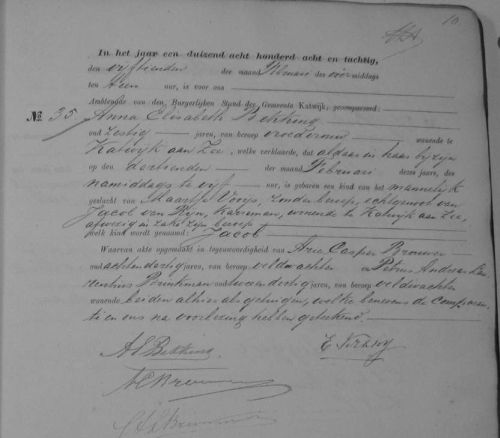 10
In het jaar een duizend acht honderd acht en tachtig,
den vijftienden der maand Februari des voormiddags
ten tien ure, is voor ons
Ambtenaar van den Burgerlijken Stand der Gemeente Katwijk, gecompareerd:
No. 35 Anna Elisabeth Bekking
oud zestig jaren, van beroep vroedvrouw wonende te
Katwijk aan Zee, welke verklaarde, dat aldaar in haar bijzijn
op den dertienden der maand Februari dezes jaars, des
namiddags te vijf ure, is geboren een kind van het mannelijk
geslacht van Maartje Vooys, zonder beroep, echtgenoot van
Jacob van Rijn, zeeman, wonende te Katwijk aan Zee,
afwezig in zake zijn beroep
welk kind wordt genaamd: Jacob
Waarvan akte opgemaakt in tegenwoordigheid van Arie Casper Brouwer
oud achtendertig jaren, van beroep veldwachter en Petrus Andreas
Brinkman oud dertig jaren, van beroep veldwachter
wonende beiden alhier als getuigen, welke benevens de comparan
te en ons na voorlezing hebben geteekend.
AE Bekking
AC Brouwer